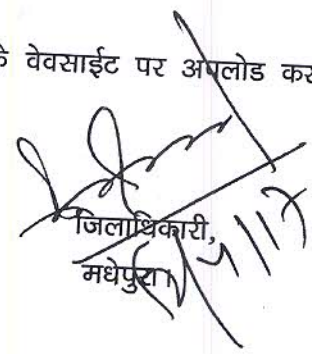 के वेवसाईट पर अपलोड कर
जिलाधिकारी,
मधेपुरा।